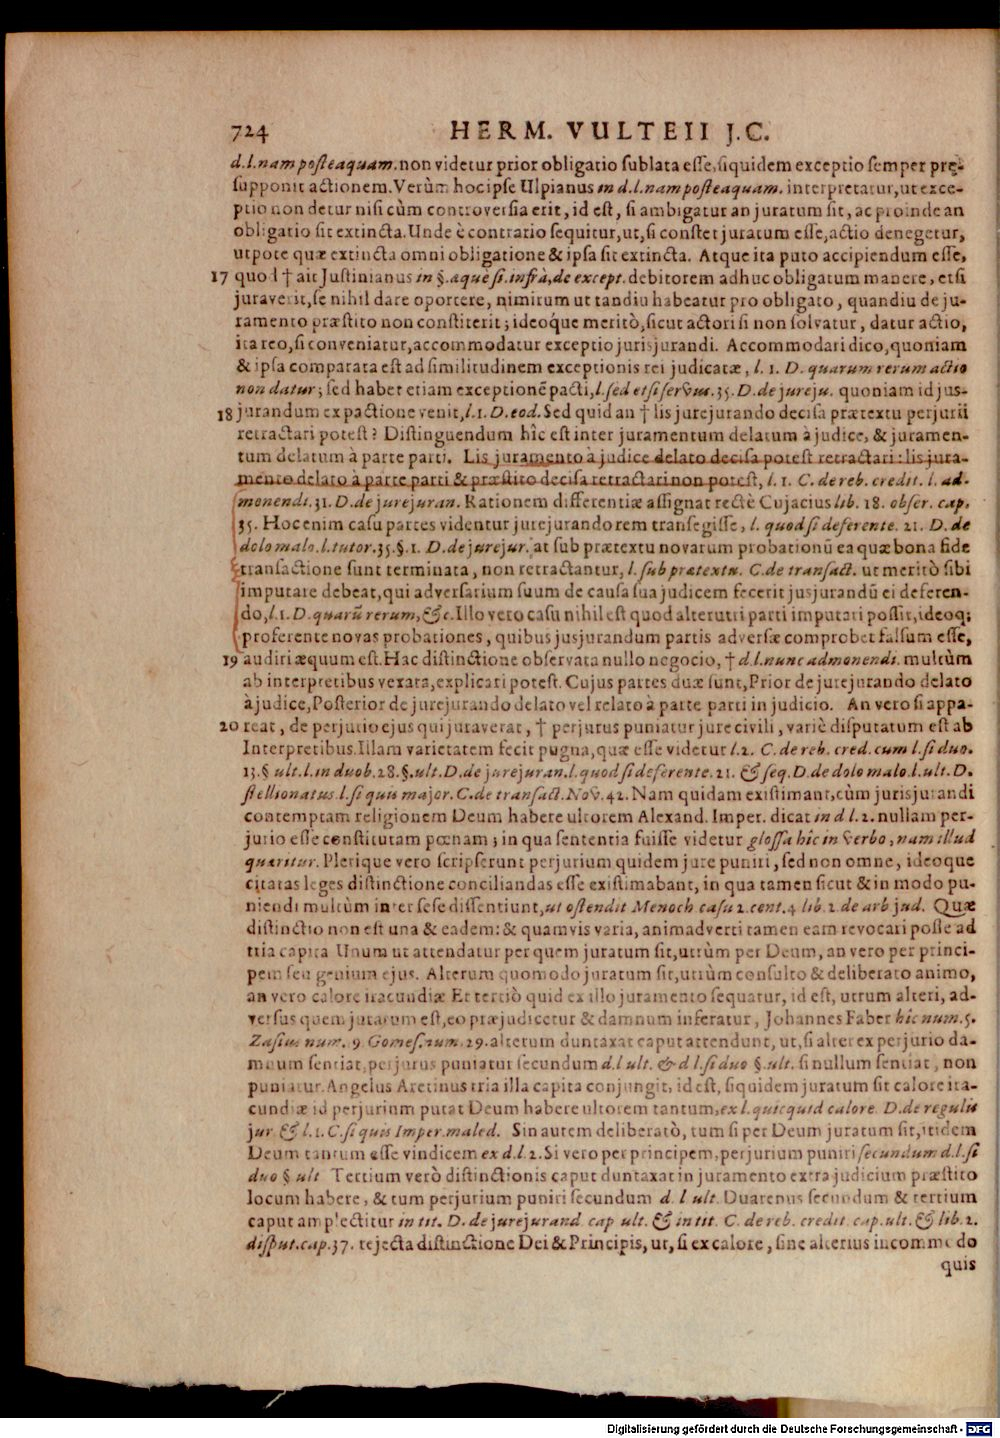 724 HERM. VULTEII J.C.
d.l.nam posteaquam. non videtur prior obligatio sublata esse, siquidem exceptio semper prę-
supponit actionem. Verùm hoc ipse Ulpianus in d.l.nam posteaquam. interpretatur, ut exce-
ptio non detur nisi cùm controversia erit, id est, si ambigatur an juratum sit, ac proinde an
obligatio sit extincta. Unde è contrario sequitur, ut, si constet juratum esse, actio denegetur,
utpote quæ extincta omni obligatione & ipsa sit extincta. Atque ita puto accipiendum esse,
17 quod † ait Justinianus in §. aquè si. infrà, de except. debitorem adhuc obligatum manere, etsi
juraverit, se nihil dare oportere, nimirum ut tandiu habeatur pro obligato, quandiu de ju-
ramento præstito non constiterit; ideoq́ue meritò, sicut actori si non solvatur, datur actio,
ita reo, si conveniatur, accommodatur exceptio jurisjurandi. Accommodari dico, quoniam
& ipsa comparata est ad similitudinem exceptionis rei judicatæ, l. 1. D. quarum rerum actio
non datur; sed habet etiam exceptionē pacti, l. sed etsi servus. 35. D. de jureju. quoniam id jus-
18 jurandum ex pactione venit, l.1. D. eod. Sed quid an † lis jurejurando decisa prætextu perjurii
retractari potest? Distinguendum hîc est inter juramentum delatum à judice, & juramen-
tum delatum à parte parti. Lis juramento à judice delato decisa potest retractari: lis jura-
mento delato à parte parti & præstito decisa retractari non potest, l. 1. C. de reb. credit. l. ad-
monendi. 31. D. de jurejuran. Rationem differentiæ assignat rectè Cujacius lib. 18. obser. cap.
35. Hoc enim casu partes videntur jurejurando rem transegisse, l. quod si deferente. 21. D. de
dolo malo. l. tutor. 35. §. 1. D. de jurejur. at sub prætextu novarum probationū ea quæ bona fide
transactione sunt terminata, non retractantur, l. sub prætextu. C. de transact. ut meritò sibi
imputare debeat, qui adversarium suum de causa sua judicem fecerit jusjurandū ei deferen-
do, l.1. D. quarū rerum, &c. Illo vero casu nihil est quod alterutri parti imputari possit, ideoq;
proferente novas probationes, quibus jusjurandum partis adversæ comprobet falsum esse,
19 audiri æquum est. Hac distinctione observata nullo negocio, † d.l. nunc admonendi. multùm
ab interpretibus vexata, explicari potest. Cujus partes duæ sunt, Prior de jurejurando delato
à judice, Posterior de jurejurando delato vel relato à parte parti in judicio. An vero si appa-
20 reat, de perjurio ejus qui juraverat, † perjurus puniatur jure civili, variè disputatum est ab
Interpretibus. Illam varietatem fecit pugna, quæ esse videtur l.2. C. de reb. cred. cum l. si duo.
13. § ult. l. in duob. 28. §. ult. D. de jurejuran. l. quod si deferente. 21. & seq. D. de dolo malo. l. ult. D.
stellionatus. l. si quis major. C. de transact. Nov. 42. Nam quidam existimant, cùm jurisjurandi
contemptam religionem Deum habere ultorem Alexand. Imper. dicat in d l. 2. nullam per-
jurio esse constitutam pœnam; in qua sententia fuisse videtur glossa hîc in verbo, nam illud
quæritur. Plerique vero scripserunt perjurium quidem jure puniri, sed non omne, ideoque
citatas leges distinctione conciliandas esse existimabant, in qua tamen sicut & in modo pu-
niendi multùm inter sese dissentiunt, ut ostendit Menoch. casu 2. cent. 4 lib. 2. de arb jud. Quæ
distinctio non est una & eadem: & quamvis varia, animadverti tamen eam revocari posse ad
tria capita Unum ut attendatur per quem juratum sit, utrùm per Deum, an vero per princi-
pem seu genium ejus. Alterum quomodo juratum sit, utrùm consulto & deliberato animo,
an vero calore iracundiæ Et tertiò quid ex illo juramento sequatur, id est, utrum alteri, ad-
versus quem juratum est, eo præjudicetur & damnum inferatur, Johannes Faber hic num. 5.
Zasius num. 9. Gomes. num. 29. alterum duntaxat caput attendunt, ut, si alter ex perjurio da-
mnum sentiat, perjurus puniatur secundum d.l ult. & d l. si duo §. ult. si nullum sentiat, non
puniatur. Angelus Aretinus tria illa capita conjungit, id est, siquidem juratum sit calore ira-
cundiæ id perjurium putat Deum habere ultorem tantum, ex l. quicquid calore. D. de regulis
jur. & l. 1. C. si quis Imper. maled. Sin autem deliberatò, tum si per Deum juratum sit, itidem
Deum tantum esse vindicem ex d.l.2. Si vero per principem, perjurium puniri secundum d.l. si
duo § ult Tertium verò distinctionis caput duntaxat in juramento extra judicium præstito
locum habere, & tum perjurium puniri secundum d. l ult. Duarenus secundum & tertium
caput amplectitur in tit. D. de jurejurand. cap ult. & in tit. C. de reb. credit. cap. ult. & lib. 2.
disput. cap. 37. rejecta distinctione Dei & Principis, ut, si ex calore, sine alterius incommodo
quis
Digitalisierung gefördert durch die Deutsche Forschungsgemeinschaft - DFG